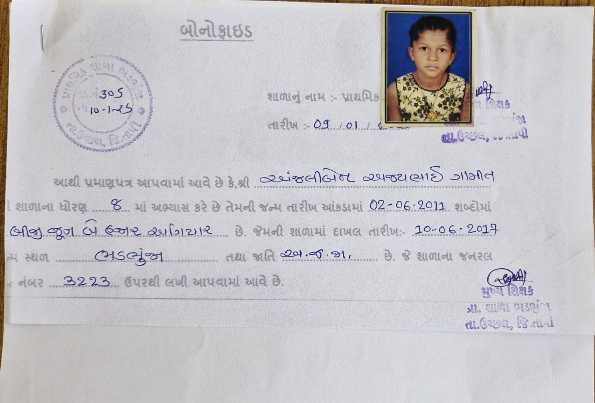 બોનોફાઇડ
શાળાનું નામ :- પ્રાથમિક
તારીખ :- 09 / 01 /
પ્રાથમિક શાળા ભડભુંજા
305
10-1-25
તા.ઉચ્છલ, જિ.તાપી
તા.ઉચ્છલ, જિ.તાપી
આથી પ્રમાણપત્ર આપવામાં આવે છે કે,શ્રી અંજલીબેન અજયભાઈ ગામીત
શાળાના ધોરણ 8 માં અભ્યાસ કરે છે તેમની જન્મ તારીખ આંકડામાં 02-06-2011 શબ્દોમાં
બીજી જૂન બે હજાર અગિયાર છે. જેમની શાળામાં દાખલ તારીખ:- 10-06-2017
સ્થળ ભડભુંજા તથા જાતિ અ.જ.જા. છે. જે શાળાના જનરલ
નંબર 3223 ઉપરથી લખી આપવામાં આવે છે.
મુખ્ય શિક્ષક
પ્રા. શાળા ભડભુંજા
તા.ઉચ્છલ, જિ.તાપી